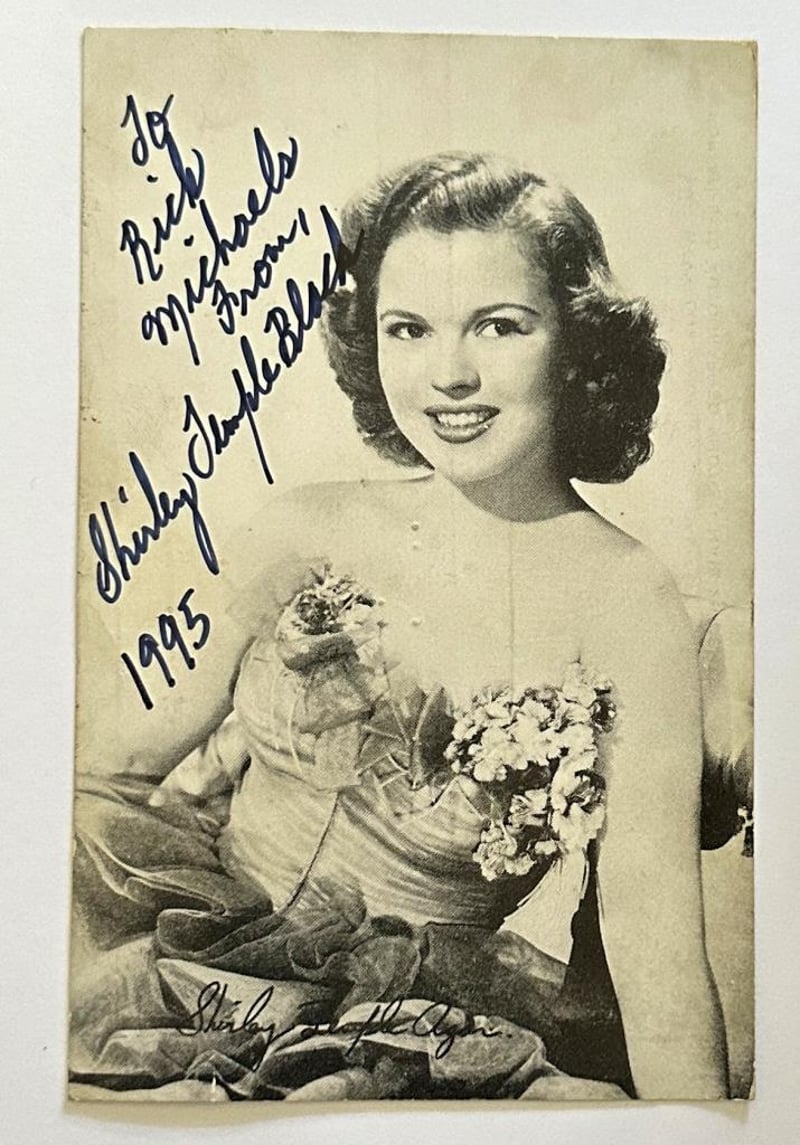 To
Rick
Michaels
From,
Shirley Temple Black
1995
Shirley Temple Agar.